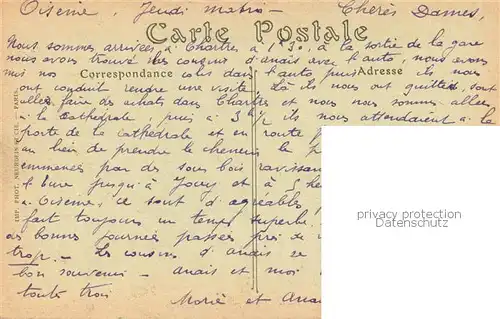 Oisème, Jeudi matin - Chères Dames,
Carte Postale
Nous sommes arrivées à Chartres à 1h30, à la sortie de la gare
nous avons trouvé les cousins d'Anaïs avec l'auto, nous avons
mis nos colis dans l'auto puis ils nous
Correspondance
Adresse
ont conduit rendre une visite, là ils nous ont quittés, sont
allés faire des achats dans Chartres et nous nous sommes allées
à la cathédrale, puis à 3h 1/2 ils nous attendaient à la
porte de la cathédrale et en route
au lieu de prendre le chemin le
emmenées par des sous bois
l'Eure jusqu'à Jouy et à 5
à Oisème, ce sont d'agréables
fait toujours un temps superbe
de bonnes journées passées près de
trop - Les cousins d'Anaïs se
bon souvenir - Anaïs et moi
toute trois
Marie et
privacy protection
watermark